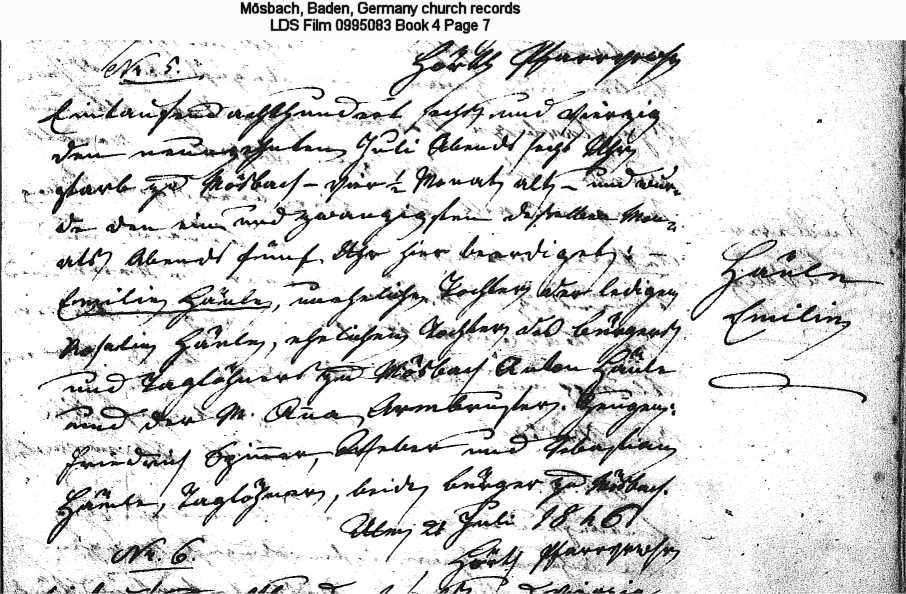 Mösbach, Baden, Germany church records
LDS Film 0995083 Book 4 Page 7
Nr. 5.
Eintausend achthundert sechs und vierzig
den neunzehnten Juli Abends sechs Uhr
starb zu Mösbach – vier ½ Monat alt – und wur-
de den ein und zwanzigsten desselben Mon-
ats Abends fünf Uhr hier beerdiget:
Emilie Häule, uneheliche Tochter der ledigen
Rosalia Häule, ehelichen Tochter des Bürgers
und Taglöhners zu Mösbach Anton Häule
und der M. Anna Armbruster. Zeugen:
Friedrich Spinner, Weber und Sebastian
Häule, Taglöhner, beide Bürger zu Mösbach.
Ulm 21 Juli 1846
Häule
Emilie
Nr. 6.